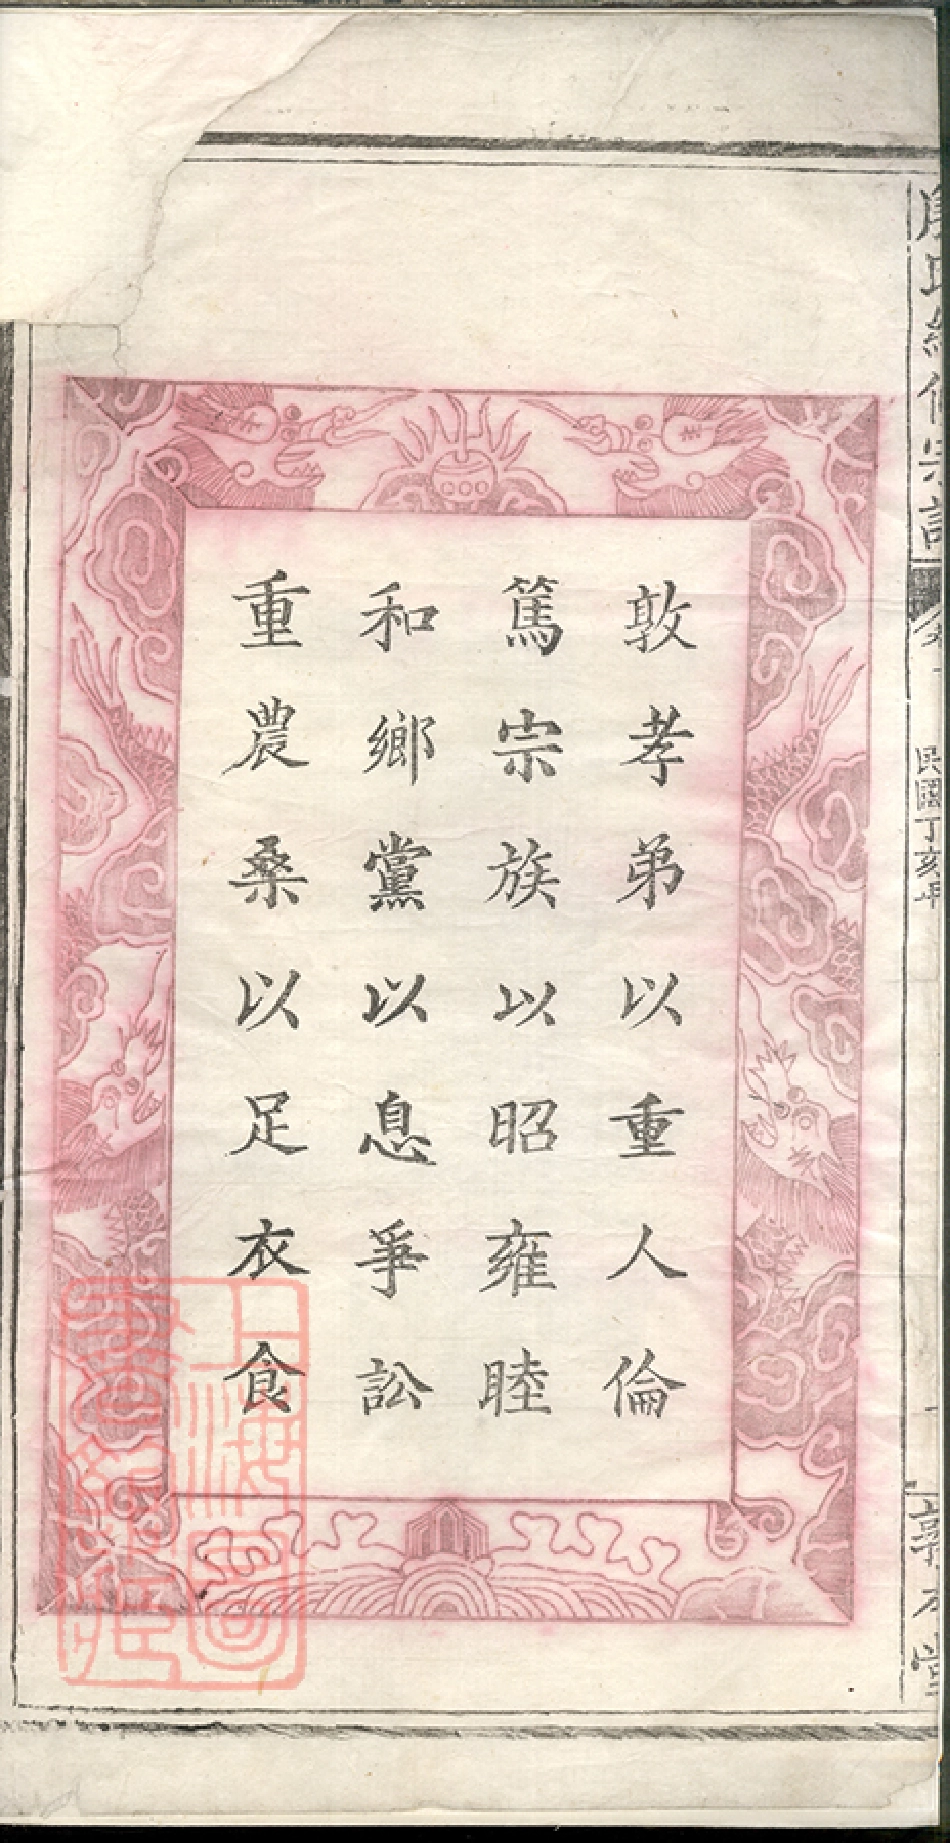 敦孝弟以重人倫
篤宗族以昭雍睦
和鄉黨以息爭訟
重農桑以足衣食
民國丁亥年
上海圖書館藏